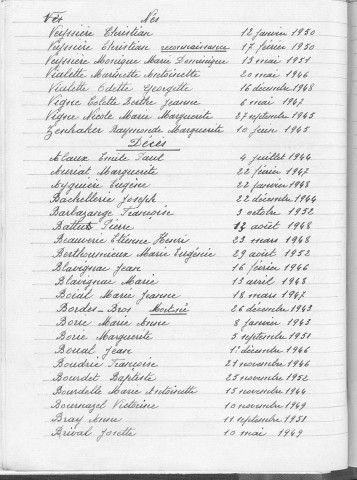 Nés
Veyssière Christian 12 janvier 1950
Veyssière Christian reconnaissance 17 février 1950
Veyssière Monique Marie Dominique 13 mai 1951
Vialette Marinette Antoinette 20 mai 1946
Vialette Odette Georgette 16 décembre 1948
Vigne Colette Berthe Jeanne 6 mai 1947
Vigne Nicole Marie Marguerite 27 septembre 1945
Zenhaker Raymonde Marguerite 10 juin 1945
Décès
Alaux Emile Paul 4 juillet 1944
Auriat Marguerite 22 février 1947
Ayguière Eugène 22 janvier 1948
Bachellerie Joseph 22 décembre 1944
Barbazange Françoise 3 octobre 1952
Battut Pierre 12 août 1948
Beauverie Etienne Henri 23 mars 1948
Berthoumieux Marie Eugénie 29 août 1952
Blavignac Jean 16 février 1946
Blavignac Marie 13 avril 1948
Boisal Marie Jeanne 18 mars 1947
Bordes-Bros Mort-né 26 décembre 1943
Borie Marie Anne 8 janvier 1943
Borie Marguerite 5 septembre 1951
Boual Jean 1er décembre 1946
Boudrie Françoise 21 novembre 1946
Bourdet Baptiste 25 novembre 1952
Bourdelle Marie Antoinette 15 novembre 1944
Bournazel Victorine 10 novembre 1949
Bray Anne 11 septembre 1951
Brival Josette 10 mai 1949